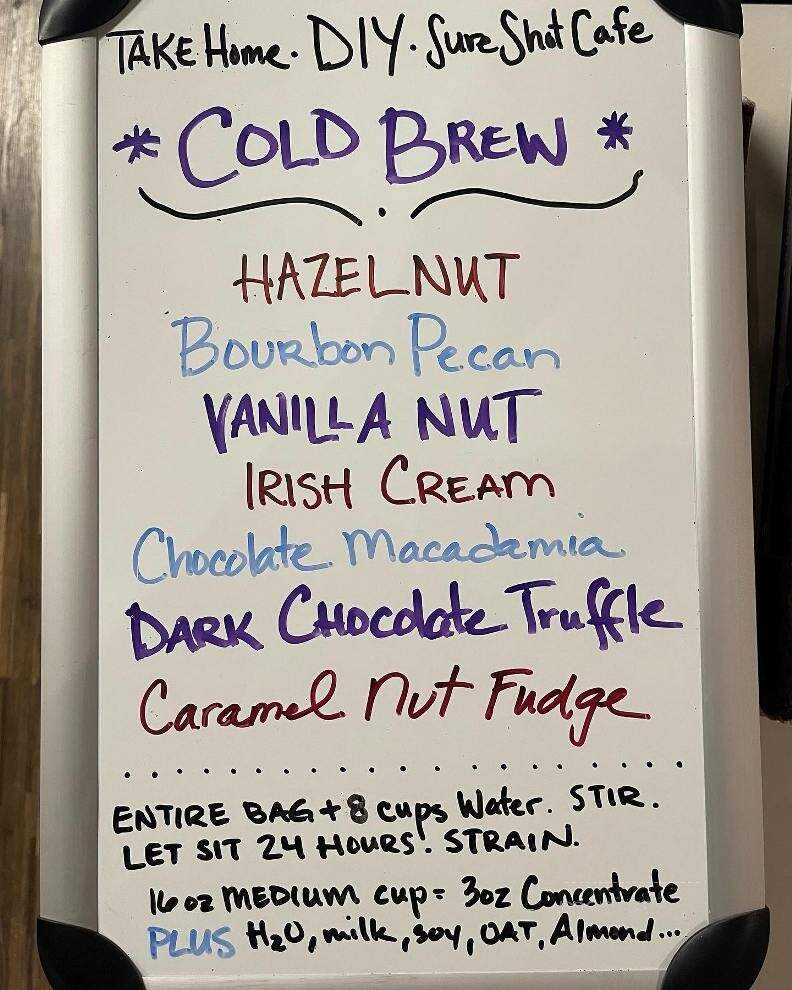 TAKE Home · DIY · Sure Shot Cafe
* COLD BREW *
HAZELNUT
Bourbon Pecan
VANILLA NUT
IRISH CREAM
Chocolate Macadamia
DARK Chocolate Truffle
Caramel Nut Fudge
ENTIRE BAG + 8 cups Water. STIR.
LET SIT 24 HOURS. STRAIN.
16 oz MEDIUM cup = 3oz Concentrate
PLUS H₂O, milk, soy, OAT, Almond...